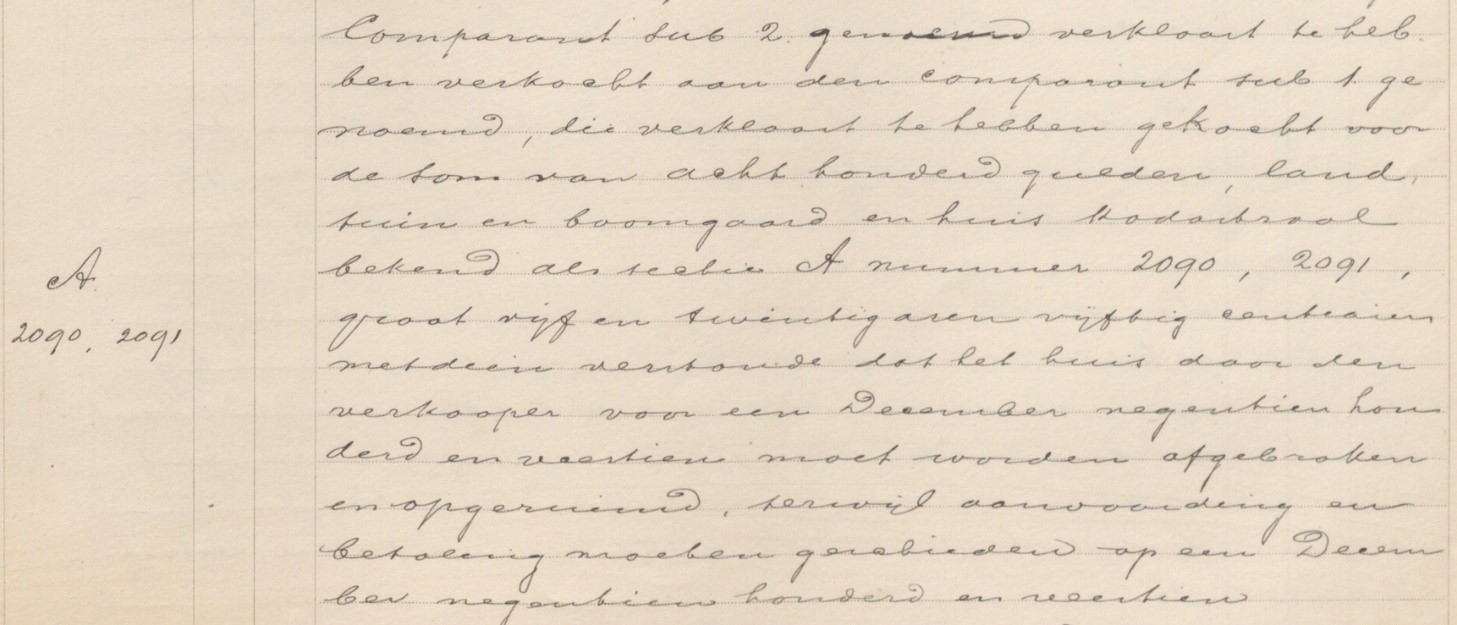 Comparant sub 2 genoemd verklaart te heb
ben verkocht aan den comparant sub 1 ge
noemd, die verklaart te hebben gekocht voor
de som van acht honderd gulden, land,
tuin en boomgaard en huis Kadastraal
bekend als sectie A nummer 2090, 2091,
A
groot vijf en twintig aren vijftig centiaren
2090, 2091
met dien verstande dat het huis door den
verkooper voor een December negentien hon
derd en veertien moet worden afgebroken
en opgeruimd, terwijl aanvaarding en
betaling moeten geschieden op een Decem
ber negentien honderd en veertien